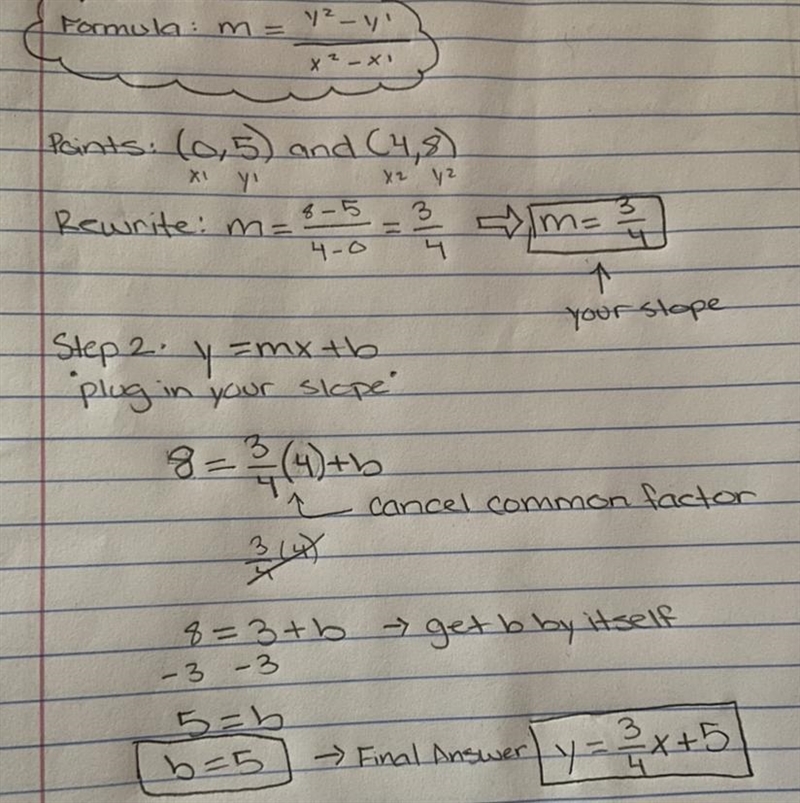 Formula: m = y2 - y1 / x2 - x1
Points: (0,5) and (4,8)
x1 y1 x2 y2
Rewrite: m = 8-5 / 4-0 = 3/4 ⇨ m = 3/4
↑
your slope
Step 2. y = mx + b
"plug in your slope"
8 = 3/4 (4) + b
↑ cancel common factor
3/4 (4)
8 = 3 + b → get b by itself
-3 -3
5 = b
b = 5 → Final Answer y = 3/4 x + 5